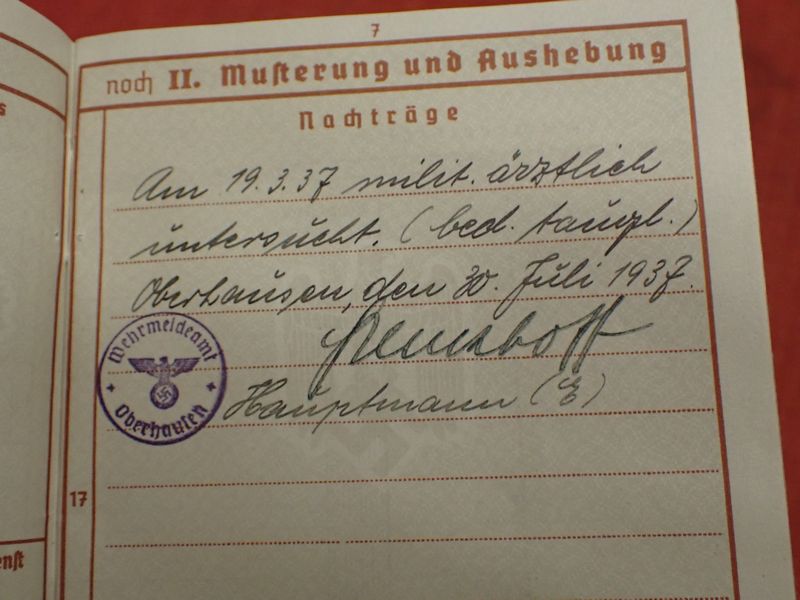 7
noch II. Musterung und Aushebung
Nachträge
Am 19.3.37 milit. ärztlich
untersucht. (bed. taugl.)
Oberhausen, den 30. Juli 1937.
Wehrmeldeamt
Oberhausen
Hauptmann (E)
17
enst